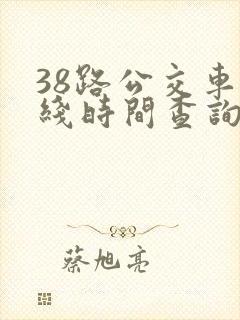 38路公交車
綫時間查詢
蔡旭亮